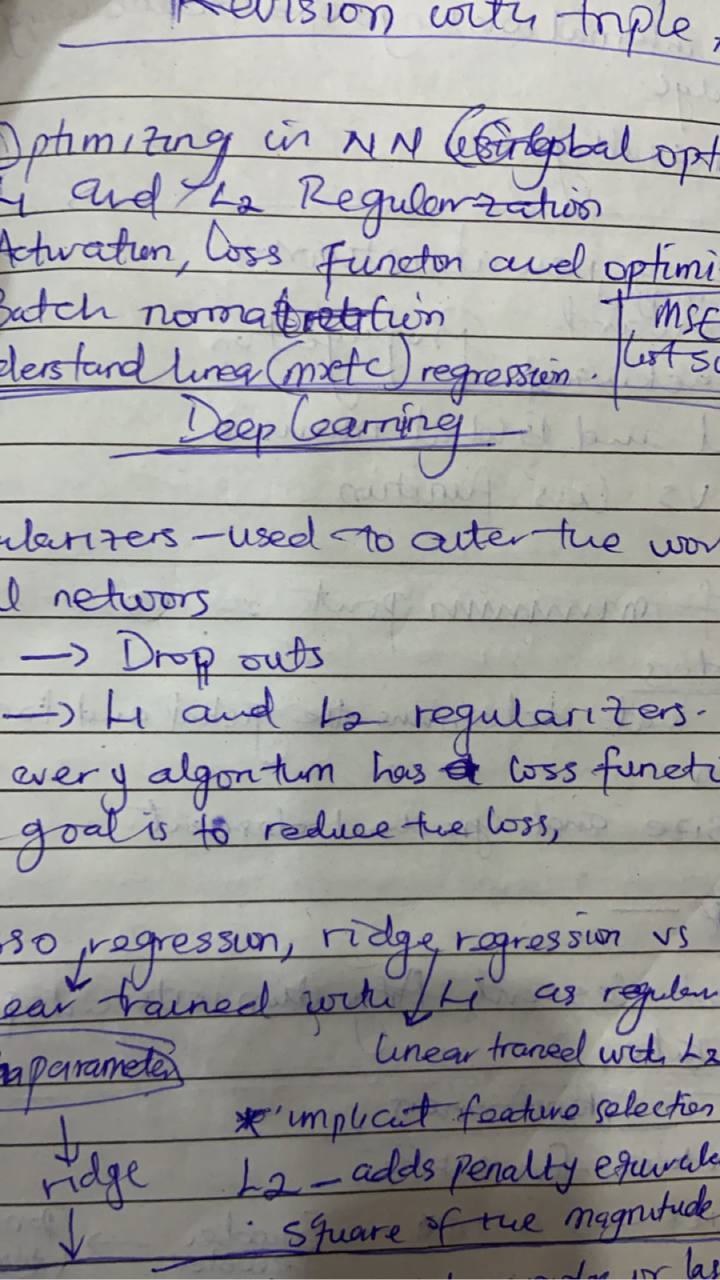 Revision with triple
Optimizing in NN global opt
L1 and L2 Regularzation
Activation, Loss Function and optimi
Batch norma
MSE
derstand linea (mx+c) regression.
Deep Learning
ularizers - used to alter the wor
l networs
→ Drop outs
→ L1 and L2 regularizers.
every algorithm has loss functi
goal is to reduce the loss,
sso regression, ridge regression vs
ear trained with L1 as regular
parameter
linear traned with L2
* implicit feature selection
ridge L2 - adds penalty equivale
square of the magnitude